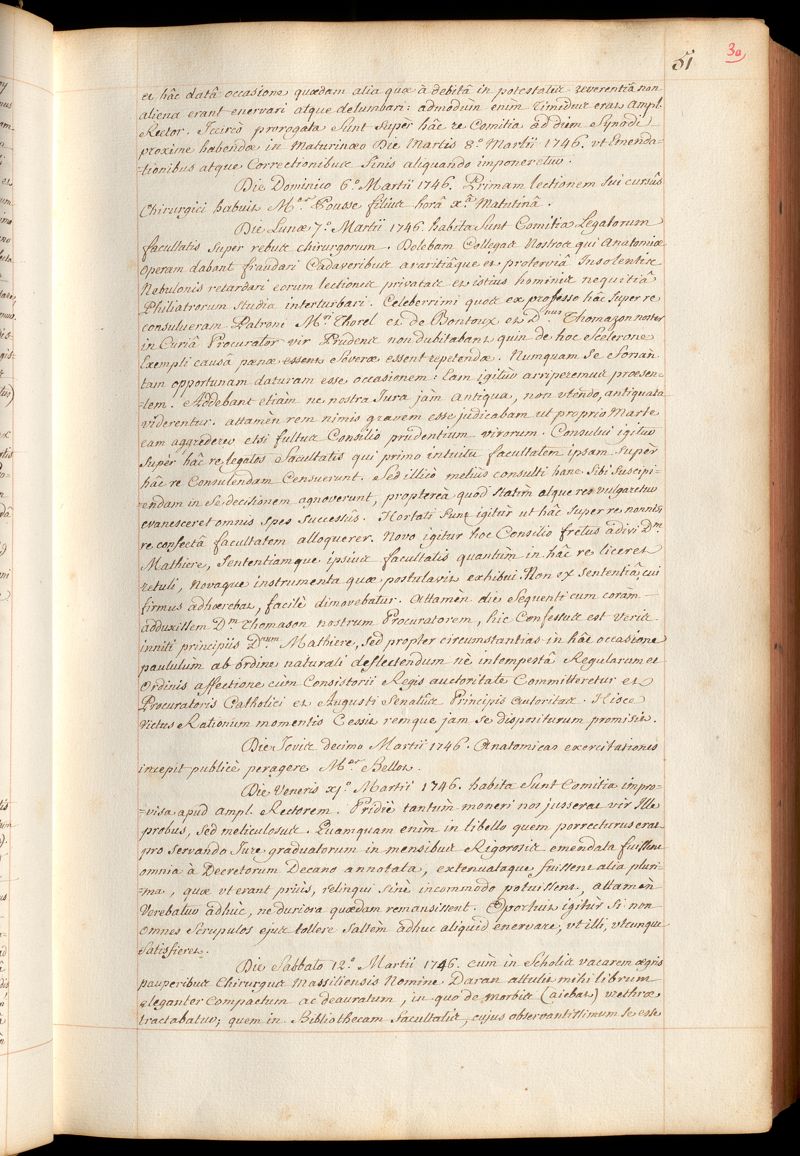 51 30
et hâc datâ occasione quædam alia quæ à debitâ in potestatus reverentiâ non
aliena erant enervari atque delumbari: admodum enim timidus erat Ampl.
Rector. Iccircò prorogata sunt super hâc re Comitia ad diem Synodi
proxime habendæ in Maturinæo Die Martis 8.º Martii 1746. ut Emenda-
-tionibus atque Correctionibus finis aliquando imponeretur.
Die Dominico 6.º Martii 1746. Primam lectionem sui cursûs
Chirurgici habuit M.er Pousse filius horâ x.â Matutinâ.
Die Lunæ 7.º Martii 1746. habita sunt Comitia Legatorum
facultatis super rebus chirurgorum. Dolebam Collegas Nostros qui Anatomiæ
operam dabant fraudari Cadaveribus avaritiâque et proterviâ Insolentis
Nebulonis retardari eorum lectiones privatas et istius hominis nequitiâ
Philiatrorum studia interturbari. Celeberrimi quos ex professo hâc super re
consulueram Patroni M.ri Thorel et de Bontoux et D.nus Thomazon noster
in Curiâ Procurator vir Prudens non dubitabant quin de hoc Scelerone
Exempli causâ pænæ essent severæ essent repetendæ. Numquam se Forian
tam opportunam daturam esse occasionem: Eam igitur arriperemus præsen-
-tem. Addebant etiam ne nostra Jura jàm antiqua, non utendo, antiquata
viderentur. attamèn rem nimis gravem esse judicabam ut proprio Marte
eam aggrederer etsi fultus Consilio prudentium virorum. Consului igitur
super hâc re legatos facultatis qui primo intuitu facultatem ipsam super
hâc re Consulendam Censuerunt. Sed illicò meliùs consulti hanc sibi suscipi-
-endam in se decisionem agnoverunt, propterea quod statim atque res vulgaretur
evanesceret omnis spes successûs. Hortati sunt igitùr ut hâc super re non nisi
re confectâ facultatem alloquerer. Novo igitur hoc Consilio fretus adivi D.m
Mathiere, Sententiamque ipsius facultatis quantùm in hâc re liceret
retuli, Novaque instrumenta quæ postulavit exhibui. Non ex sententiâ, cui
firmus adhærebat, facilè dimovebatur. Attamèn die sequenti cum coràm
adduxissem D.m Thomason nostrum Procuratorem, hic Confessus est veris
inniti principiis D.num Mathiere, Sed propter circumstantias in hâc occasione
paululùm ab ordine naturali deflectendum nè intempestâ Regularum et
Ordinis affectione cùm Consistorii Regis auctoritate Committeretur et
Procuratoris Catholici et Augusti Senatûs Principis autoritas. Hisce
victus Rationum momentis Cessit remque jam se dispositurum promisit.
Die Jovis decimo Martii 1746. Anatomicas exercitationes
incepit publicè peragere M.er Bellot.
Die Veneris xj.º Martii 1746. habita sunt Comitia impro-
-visa apud Ampl. Rectorem. Pridiè tantùm moneri nos jusserat vir Ille
probus, sed meticulosus. Quamquam enim in libello quem porrecturus erat
pro servando Jure graduatorum in mensibus Rigorosis emendata fuissent
omnia à Decretorum Decano annotata, extenuataque fuissent alia pluri-
-ma, quæ ut erant priùs, relinqui sinè incommodo potuissent, attamèn
Verebatur adhùc, ne duriora quædam remansissent. Oportuit igitùr si non
omnes Scrupulos ejus tollere saltèm adhuc aliquid enervare, ut illi, utcunque
satisfieret.
Die Sabbato 12.º Martii 1746. cùm in Scholis vacarem ægris
pauperibus Chirurgus Massiliensis Nomine Daran attulit mihi librum
eleganter Compactum ac deauratum, in quo de morbis (aiebat) urethræ
tractabatur; quem in Bibliothecam facultatis, cujus observantissimum se esse